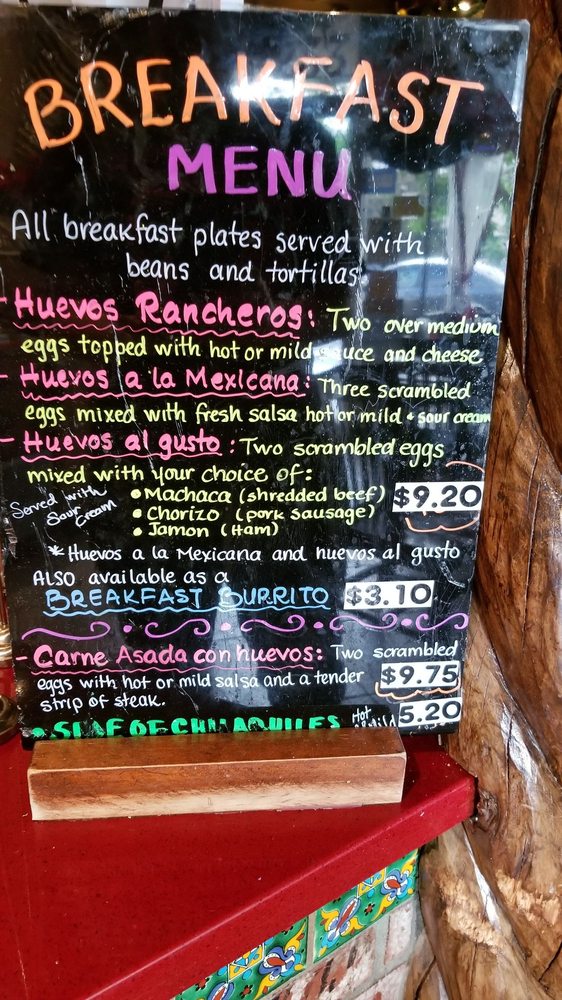 BREAKFAST
MENU
All breakfast plates served with
beans and tortillas.
- Huevos Rancheros: Two over medium
eggs topped with hot or mild sauce and cheese
- Huevos a la Mexicana: Three scrambled
eggs mixed with fresh salsa hot or mild + sour cream
- Huevos al gusto: Two scrambled eggs
mixed with your choice of:
Served with
Sour
Cream
• Machaca (shredded beef)
• Chorizo (pork sausage)
• Jamon (Ham)
$9.20
* Huevos a la Mexicana and huevos al gusto
ALSO available as a
BREAKFAST BURRITO $3.10
- Carne Asada con huevos: Two scrambled
eggs with hot or mild salsa and a tender $9.75
strip of steak.
• SIDE OF CHILAQUILES Hot 5.20